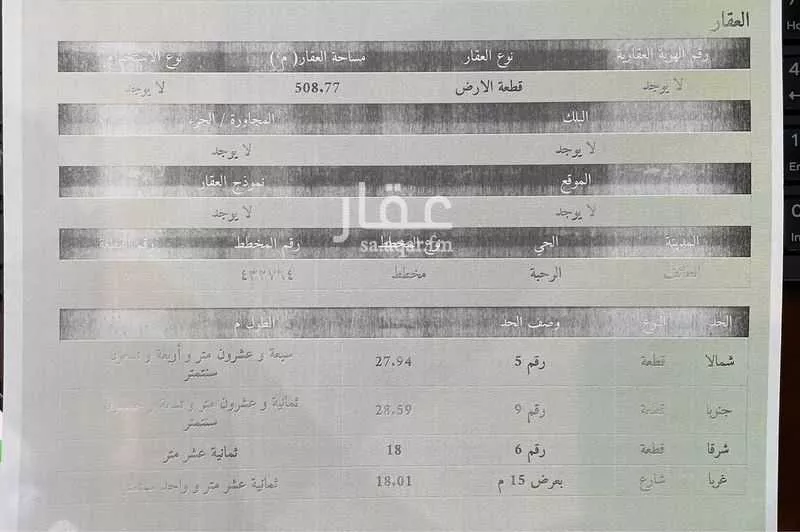 العقار
رقم الهوية العقارية نوع العقار مساحة العقار( م ) نوع الاستخدام
لا يوجد قطعة الارض 508.77 لا يوجد
البلك المجاورة / الجزء
لا يوجد لا يوجد
الموقع نموذج العقار
لا يوجد لا يوجد
عقار
sa.aqar.fm
المدينة الحي نوع المخطط رقم المخطط رقم القطعة
الطائف الرحبة مخطط
الحد النوع وصف الحد الطول م
شمالا قطعة رقم 5 27.94 سبعة و عشرون متر و أربعة و تسعون
سنتمتر
جنوبا قطعة رقم 9 28.59 ثمانية و عشرون متر و تسعة و خمسون
سنتمتر
شرقا قطعة رقم 6 18 ثمانية عشر متر
غربا شارع بعرض 15 م 18.01 ثمانية عشر متر و واحد سنتمتر
4
1
En
0
In